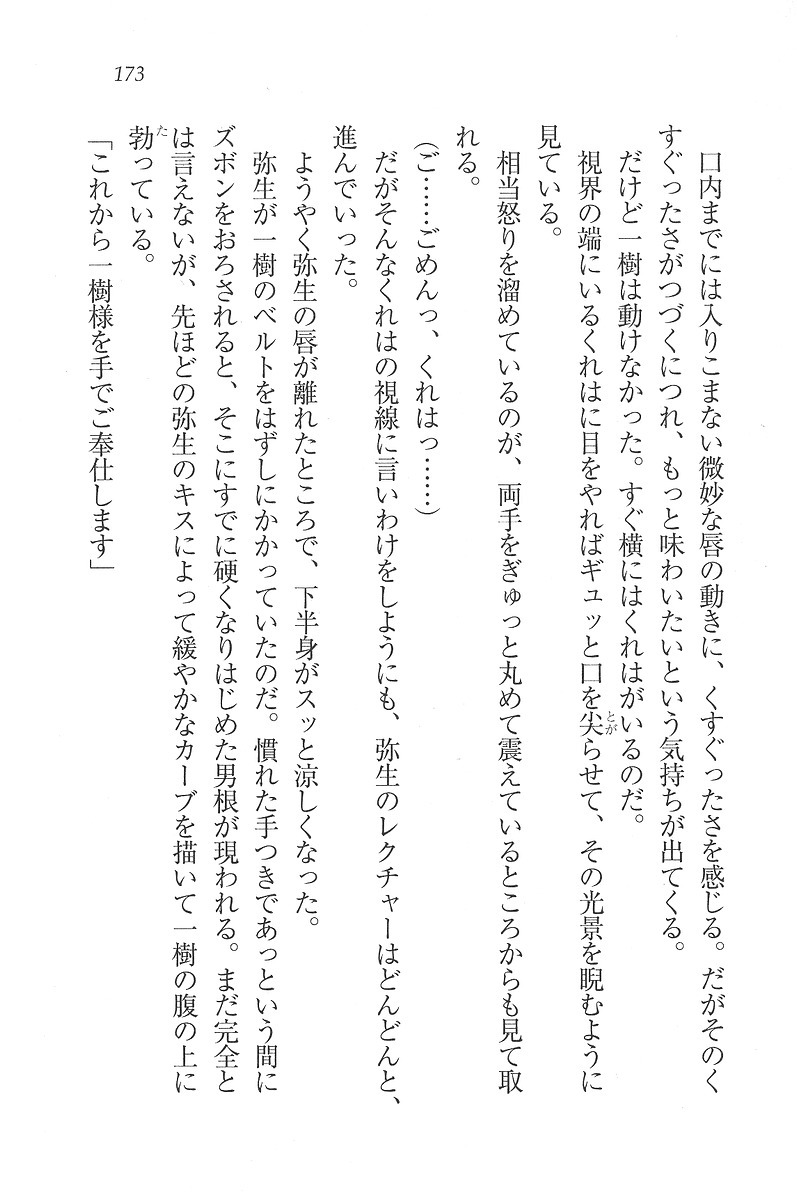 173
口内までには入りこまない微妙な唇の動きに、くすぐったさを感じる。だがそのく
すぐったさがつづくにつれ、もっと味わいたいという気持ちが出てくる。
だけど一樹は動けなかった。すぐ横にはくれはがいるのだ。
とが
視界の端にいるくれはに目をやればギュッと口を尖らせて、その光景を睨むように
見ている。
相当怒りを溜めているのが、両手をぎゅっと丸めて震えているところからも見て取
れる。
(ご……ごめんっ、くれはっ……)
だがそんなくれはの視線に言いわけをしようにも、弥生のレクチャーはどんどんと、
進んでいった。
ようやく弥生の唇が離れたところで、下半身がスッと涼しくなった。
弥生が一樹のベルトをはずしにかかっていたのだ。慣れた手つきであっという間に
ズボンをおろされると、そこにすでに硬くなりはじめた男根が現われる。まだ完全と
は言えないが、先ほどの弥生のキスによって緩やかなカーブを描いて一樹の腹の上に
た
勃っている。
「これから一樹様を手でご奉仕します」